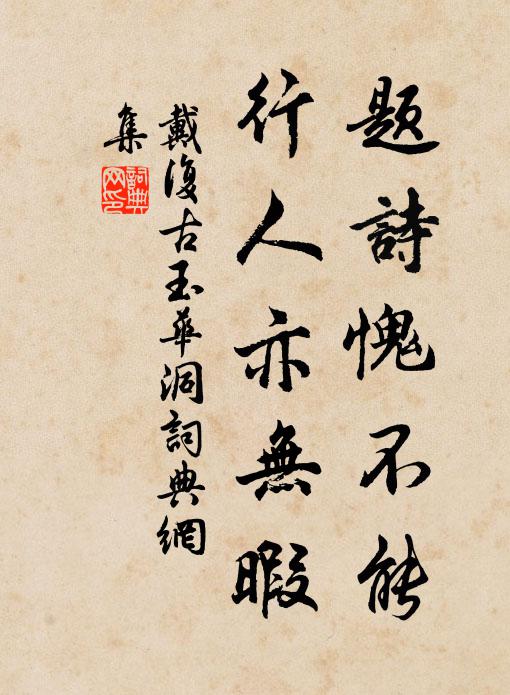 題詩愧不能
行人亦無暇
戴復古玉華洞詞典網
集
詞典
网印